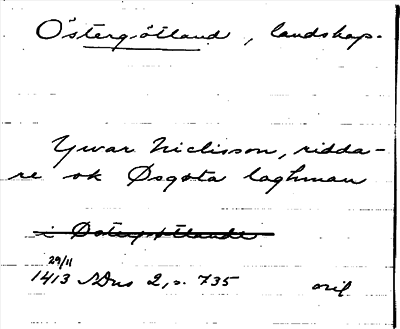 Östergötland, landskap.
Ywar Niclisson, ridda-
re ok Øsgøta laghman
i Østergøtlande
29/11
1413 SDns 2, s. 735 oril